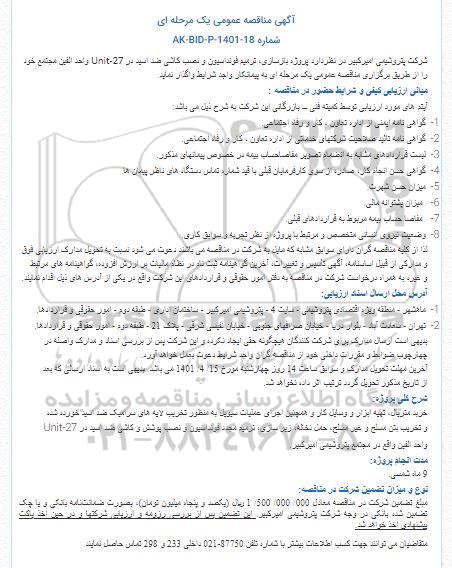 آگهی مناقصه عمومی یک مرحله ای
شماره AK-BID-P-1401-18
شرکت پتروشیمی امیرکبیر در نظردارد پروژه بازسازی، ترمیم فونداسیون و نصب کاشی ضد اسید در Unit-27 واحد الفین مجتمع خود
را از طریق برگزاری مناقصه عمومی یک مرحله ای به پیمانکار واجد شرایط واگذار نماید.
مبانی ارزیابی کیفی و شرایط حضور در مناقصه :
آیتم های مورد ارزیابی توسط کمیته فنی – بازرگانی این شرکت به شرح ذیل می باشد:
1- گواهی نامه ایمنی از اداره تعاون ، کار و رفاه اجتماعی.
2- گواهی نامه تائید صلاحیت شرکتهای خدماتی از اداره تعاون ، کار و رفاه اجتماعی.
3- لیست قراردادهای مشابه به انضمام تصویر مفاصاحساب بیمه در خصوص پیمانهای مذکور.
4- گواهی حسن انجام کار، صادره از سوی کارفرمایان قبلی با قید شماره تماس دستگاه های ناظر پیمان ها.
5- میزان حسن شهرت.
6- میزان پشتوانه مالی.
7- مفاصا حساب بیمه مربوط به قراردادهای قبلی.
8- وضعیت نیروی انسانی متخصص و مرتبط با پروژه از نظر تجربه و سوابق کاری.
لذا از کلیه مناقصه گران دارای سوابق مشابه که مایل به شرکت در مناقصه می باشند دعوت می شود نسبت به تحویل مدارک ارزیابی فوق
و مدارکی از قبیل اساسنامه، آگهی تاسیس و تغییرات، آخرین گواهینامه ثبت نام در نظام مالیات بر ارزش افزوده، گواهینامه های مرتبط
و غیره به همراه درخواست شرکت در مناقصه به دفتر امور حقوقی و قراردادهای این شرکت واقع در یکی از آدرس های ذیل اقدام نمایند.
آدرس محل ارسال اسناد ارزیابی:
1- ماهشهر - منطقه ویژه اقتصادی پتروشیمی - سایت 4 - پتروشیمی امیرکبیر - ساختمان اداری - طبقه دوم - امور حقوقی و قراردادها.
2- تهران - سعادت آباد - بلوار دریا - خیابان صرافهای جنوبی - خیابان نفیسی شرقی - پلاک 21 - طبقه دوم - امور حقوقی و قراردادها.
بدیهی است ارسال مدارک برای شرکت کنندگان هیچگونه حقی ایجاد نکرده و این شرکت پس از بررسی اسناد و مدارک واصله در
چهارچوب ضوابط و مقررات داخلی خود از مناقصه گران واجد شرایط دعوت بعمل خواهد آورد.
آخرین مهلت تحویل مدارک و سوابق ساعت 14 روز چهارشنبه مورخ 15/ 4/ 1401 می باشد. بدیهی است به اسناد ارسالی که بعد
از تاریخ مذکور تحویل گردد ترتیب اثر داده نخواهد شد.
شرح کلی پروژه:
خرید متریال، تهیه ابزار و وسایل کار و همچنین اجرای عملیات سیویل به منظور تخریب لایه های سرامیک ضد اسید خورده شده و
و تخریب بتن مسلح و غیر مسلح، حمل نخاله، زیر سازی، ترمیم مجدد فونداسیون و نصب پوشش و کاشی ضد اسید در Unit-27
واحد الفین واقع در مجتمع پتروشیمی امیرکبیر.
مدت انجام پروژه:
9 ماه شمسی
نوع و میزان تضمین شرکت در مناقصه:
مبلغ تضمین شرکت در مناقصه معادل 000/ 000/ 500/ 1 ریال (یکصد و پنجاه میلیون تومان)، بصورت ضمانت‌نامه بانکی و یا چک
تضمین شده بانکی در وجه شرکت پتروشیمی امیرکبیر. این تضمین پس از بررسی رزومه و ارزیابی شرکتها و در حین اخذ پاکت
پیشنهادی اخذ خواهد شد.
متقاضیان می توانند جهت کسب اطلاعات بیشتر با شماره تلفن 87750-021 داخلی 233 و 298 تماس حاصل نمایند.